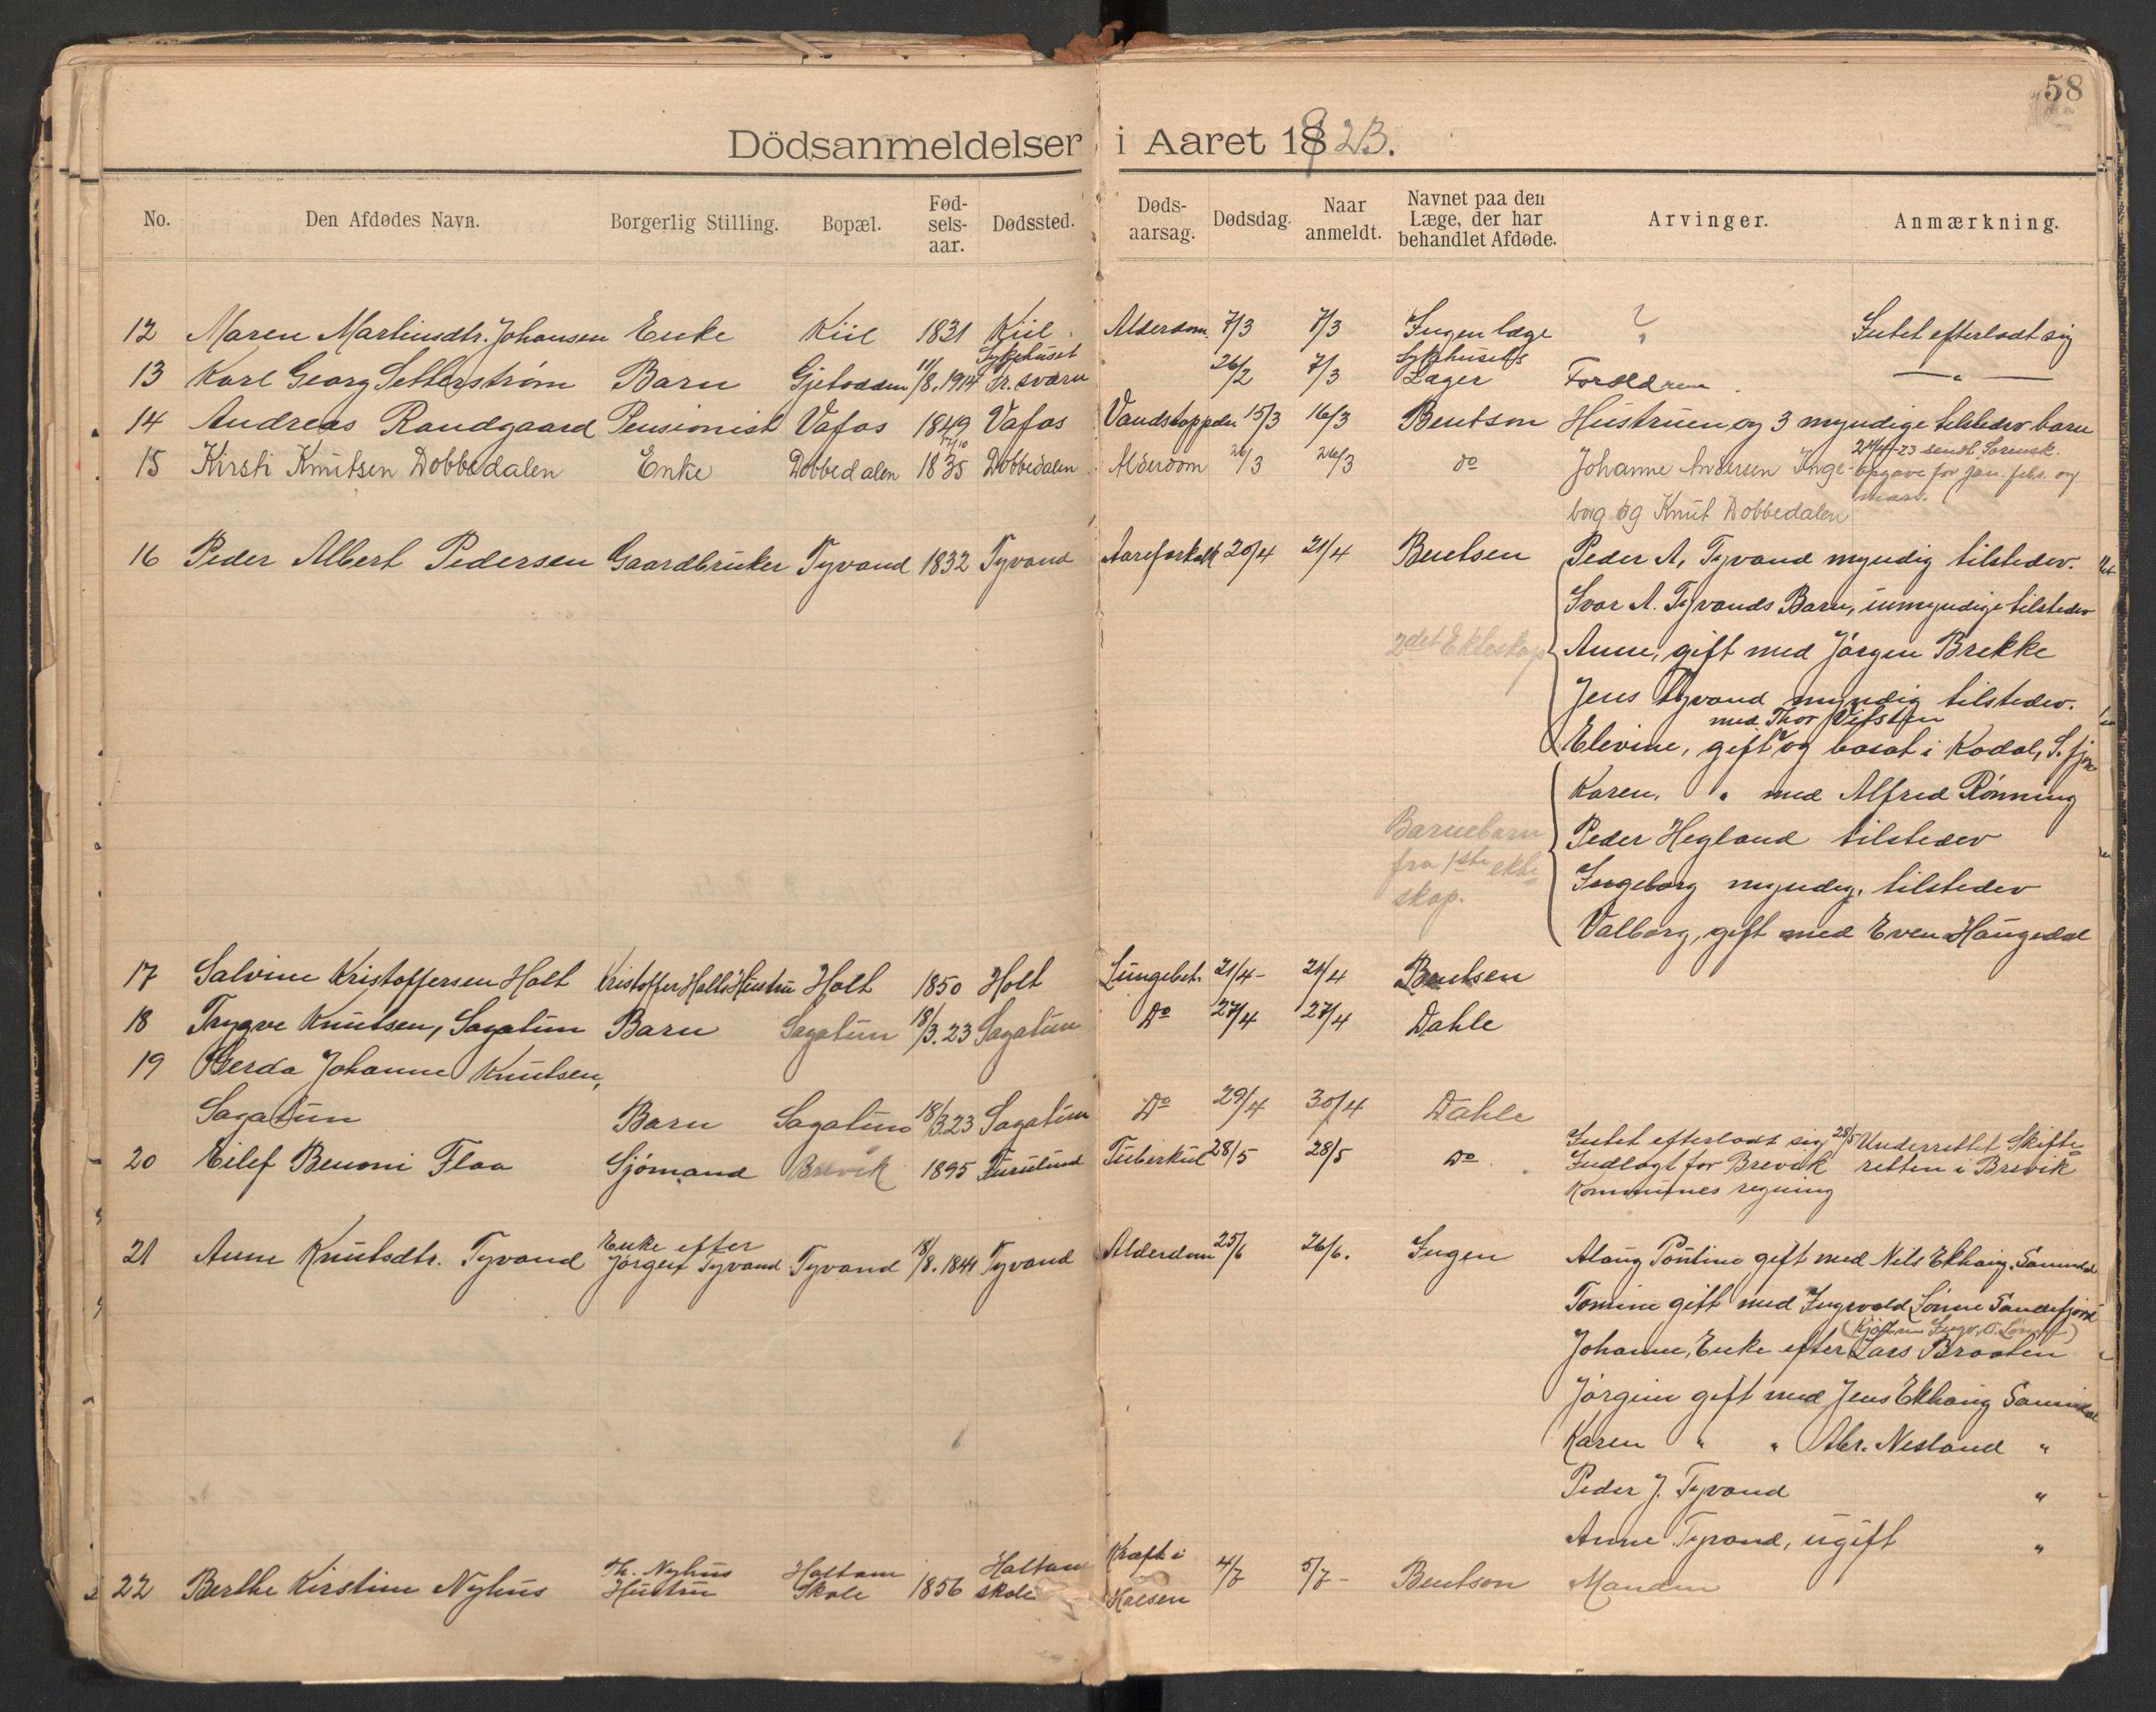 58
Dödsanmeldelser i Aaret 1923.
No. Den Afdødes Navn. Borgerlig Stilling. Bopæl. Fød-sels-aar. Dødssted. Døds-aarsag. Dødsdag. Naar anmeldt. Navnet paa den Læge, der har behandlet Afdøde. Arvinger. Anmærkning.
12 Maren Martinsdtr. Johansen Enke Kiil 1831 Kiil. Alderdom 7/3 7/3 Ingen læge ? Intet efterladt sig
13 Karl Georg Setterstrøm Barn Gjetodden 11/8.1914 Sykehuset Fr.værn " 26/2 7/3 Sykehusets Læger Forældrene. — " —
14 Andreas Randgaard Pensionist Vafos 1849 Vafos Vandstoppelse 15/3 16/3 Bentson Hustruen og 3 myndige tilstedev barn
15 Kirsti Knutsen Dobbedalen Enke Dobbedalen 17/10 1835 Dobbedalen Alderdom 26/3 26/3 do Johanne Andersen Inge-
24/4-23 sendt Sorensk.
opgave for jan. febr. og
mars.
borg og Knut Dobbedalen
16 Peder Albert Pedersen Gaardbruker Tyvand 1832 Tyvand Aareforkalk 20/4 21/4 Bentsen Peder A. Tyvand myndig tilstedev.
Ivar A. Tyvands Barn, umyndige tilstedev
2det Ekteskap Anne, gift med Jörgen Brekke
Jens Tyvand myndig tilstedev.
med Thor Vefsten
Elevine, gift og bosat i Kodal, S.fjor
Karen, " med Alfred Rönning
Barnebarn Peder Hegland tilstedev
fra 1ste ekte
skap.
Ingeborg myndig, tilstedev
Valborg, gift med Even Haugedal
17 Salvine Kristoffersen Holt Kristoffer Holts Hustru Holt 1850 Holt Lungebet. 21/4- 24/4 Bentsen
18 Trygve Knutsen, Sagatun Barn Sagatun 18/3.23 Sagatun Do 27/4 27/4 Dahle
19 Gerda Johanne Knutsen,
Sagatun Barn Sagatun 18/3.23 Sagatun Do 29/4 30/4 Dahle
20 Eilef Benoni Flaa Sjömand Brevik 1895 Furulund Tuberkul 28/5 28/5 Do. Intet efterladt sig 28/5 Underrettet Skifte
Indlagt for Brevik retten i Brevik
Kommunes regning
21 Anne Knutsdtr. Tyvand Enke efter Jörgen Tyvand Tyvand 18/8.1841 Tyvand Alderdom 25/6 26/6. Ingen Alaug Pontine gift med Nils Ekhaug, Sannidal
Tomine gift med Ingvald Lönne Sandefjord
Johanne, Enke efter Lars Braaten
Jörgine gift med Jens Ekhaug Sannidal
Karen " " Abr. Nesland "
Peder J. Tyvand "
Anne Tyvand, ugift "
22 Berthe Kirstine Nyhus Th. Nyhus Hustru Holtane Skole 1856 Holtane skole Kræft i Halsen 4/7 5/7- Bentson Manden